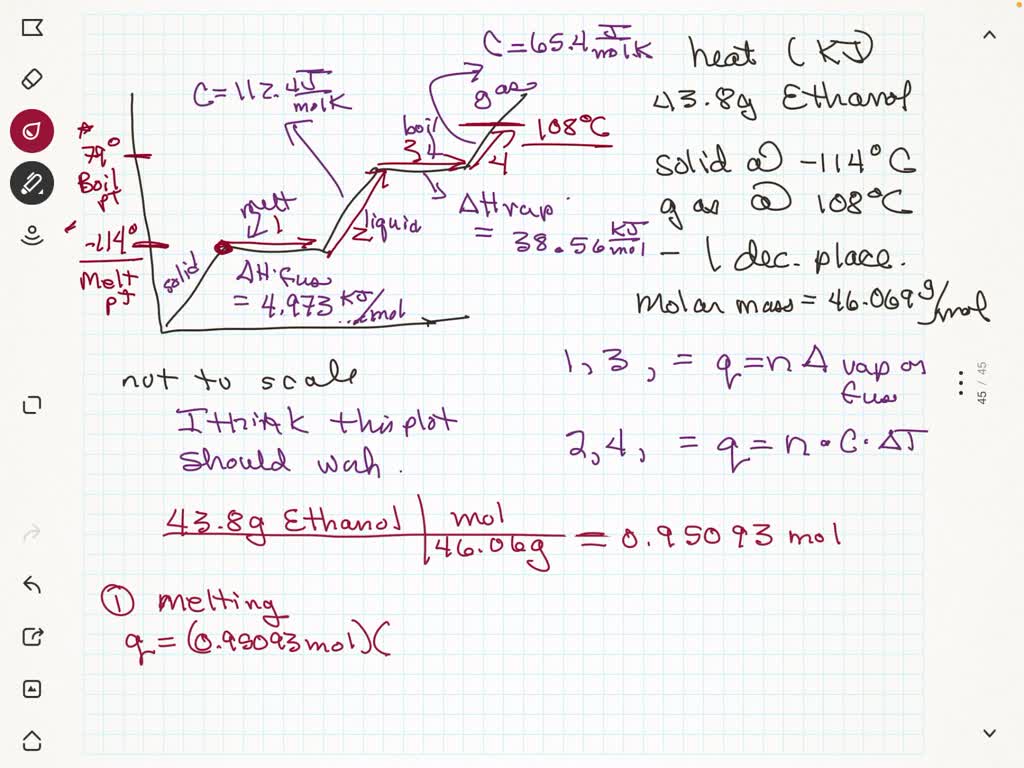 C=65.4 J/mol.K
heat (KJ)
C=112.4 J/molK
gas
43.8g Ethanol
boil
108°C
79°
3
4
solid @ -114°C
Boil
pt
melt
ΔHvap
gas @ 108°C
1
liquid
2
= 38.56 KJ/mol
-114°
solid
- 1 dec. place.
Melt
pt
ΔH.fus
= 4.973 KJ/mol
Molar mass = 46.069 g/mol
not to scale
1,3, = q=nΔ vap or
fus
I think this plot
should
2,4, = q=n·C·ΔT
43.8g Ethanol | mol
46.06g = 0.95093 mol
① melting
q=(0.95093mol)(
45 / 45